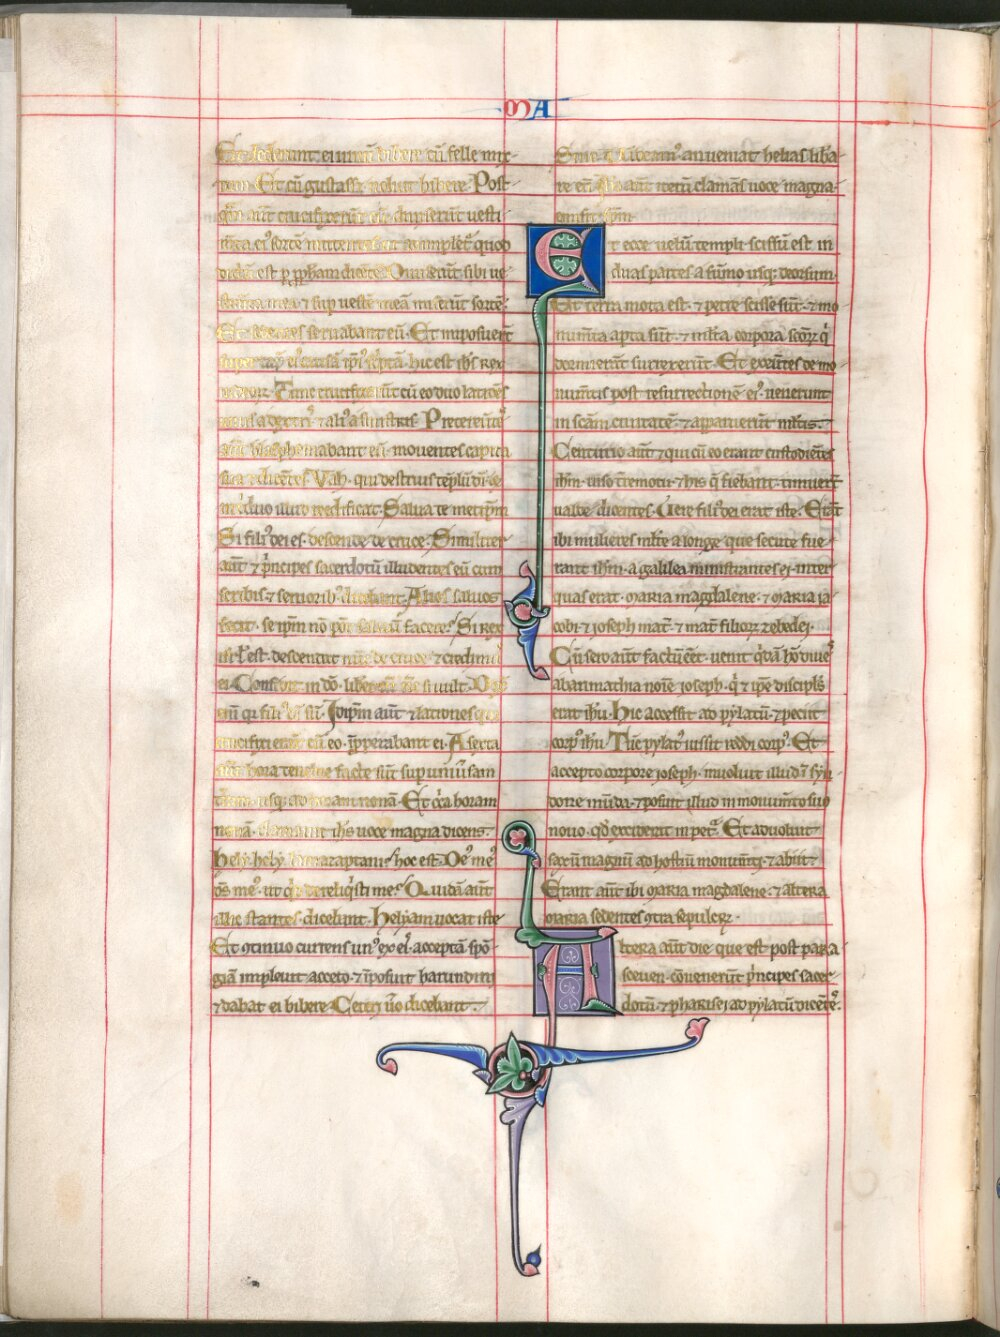 MA
Et dederunt ei uinū bibere cū felle mix-
tum. Et cū gustasset noluit bibere. Post-
qm̄ aūt crucifixerūt eū. diuiserūt uesti-
m̄ta eiꝰ sortē mittentes. ut impleret᷑ quod
dictū est p ꝓpham dicētē. Diuiserūt sibi ue-
stim̄ta mea. ⁊ sup uestē meā miserūt sortē.
Et sedentes seruabant eū. Et imposuerūt
super caput eiꝰ causā ipiꝰ scͥptā. hic est ihs̄ rex
iudeoꝝ. Tunc crucifixi sūt cū eo duo latrōes
unus a dextris ⁊ aliꝰ a sinistris. Pretereūtes
aūt blasphemabant eū. mouentes capita
sua ⁊ dicētes. Vah. qui destruis tēplū dī ⁊
in tͥduo illud reedificat. Salua te metip̄m
Si filiꝰ dei es. descende de cruce. Similiter
aūt ⁊ pͥncipes sacerdotū illudentes eū cum
scribis ⁊ seniorib; dicebant. Alios saluos
fecit. se ip̄m nō pōt saluū facere. Si rex
isrl̄ est. descendat nūc de cruce ⁊ credimꝰ
ei. Confidit in dō. liberet eū nūc si uult. Dix
em̄ qꝛ filiꝰ dī sū. Idip̄m aūt ⁊ latrones qui
crucifixi erant cū eo. īproperabant ei. A sexta
aūt hora tenebre facte sūt sup uniūsam
t̄ram. usq; ad horam nonā. Et cͥca horam
nonā. clamauit ihs̄ uoce magna dicens.
Hely. hely. lamazaptani. hoc est. Deꝰ meꝰ
dꝰs meꝰ. ut qͥd dereliqͥsti me. Quidā aūt
illic stantes dicebant. Helyam uocat iste
Et ꝯtinuo currens unꝰ ex eiˢ acceptā spō-
giā impleuit aceto. ⁊ īposuit harundini
⁊ dabat ei bibere. Ceteri ūo dicebant.
Sine uideamꝰ an ueniat helias libͤa-
re eū. Ih̄s aūt iterū clamās uoce magna
emisit sp̄m.
Et ecce uelū templi scissū est in
duas partes a sūmo usq; deorsum.
Et terra mota est. ⁊ petre scisse sūt. ⁊ mo-
num̄ta apta sūt. ⁊ mͭta corpora sc̄oꝝ qͥ
dormierāt surrexerūt. Et exeūtes de mo-
num̄tis post resurrectionē eiꝰ. uenerunt
in sc̄am ciuitatē. ⁊ apparuerūt mͭtis.
Centurio aūt ⁊ qui cū eo erant custodiētes
ih̄m. uiso tremotu ⁊ his q̄ fiebant. timuerūt
ualde dicentes. Uere filiꝰ dei erat iste. Erāt
ibi mulieres mͭte a longe. que secute fue-
rant ih̄m. a galilea ministrantes ei. inter
quas erat. maria magdalene. ⁊ maria ia-
cobi ⁊ ioseph mat᷑. ⁊ mat᷑ filioꝝ zebedei.
Cū sero aūt factū eēt. uenit qͥdā hō diuesˀ
ab arimathia noīe ioseph. qͥ ⁊ ipe discipl̄s
erat ih̄u. Hic accessit ad pylatū. ⁊ peciit
corpꝰ ih̄u. Tūc pylatꝰ iussit reddi corpꝰ. Et
accepto corpore ioseph. inuoluit illud ī syn-
done mūda. ⁊ posuit illud in monum̄to suo
nouo. qd̄ exciderat in petͣ. Et aduoluit
saxū magnū ad hostiū monum̄ti. ⁊ abiit.
Erant aūt ibi maria magdalene. ⁊ altera
maria sedentes ꝯtra sepulcrꝫ.
Altera aūt die. que est post para-
sceuen. cōuenerūt pͥncipes sacer-
dotū. ⁊ pharisei ad pylatū dicētes.